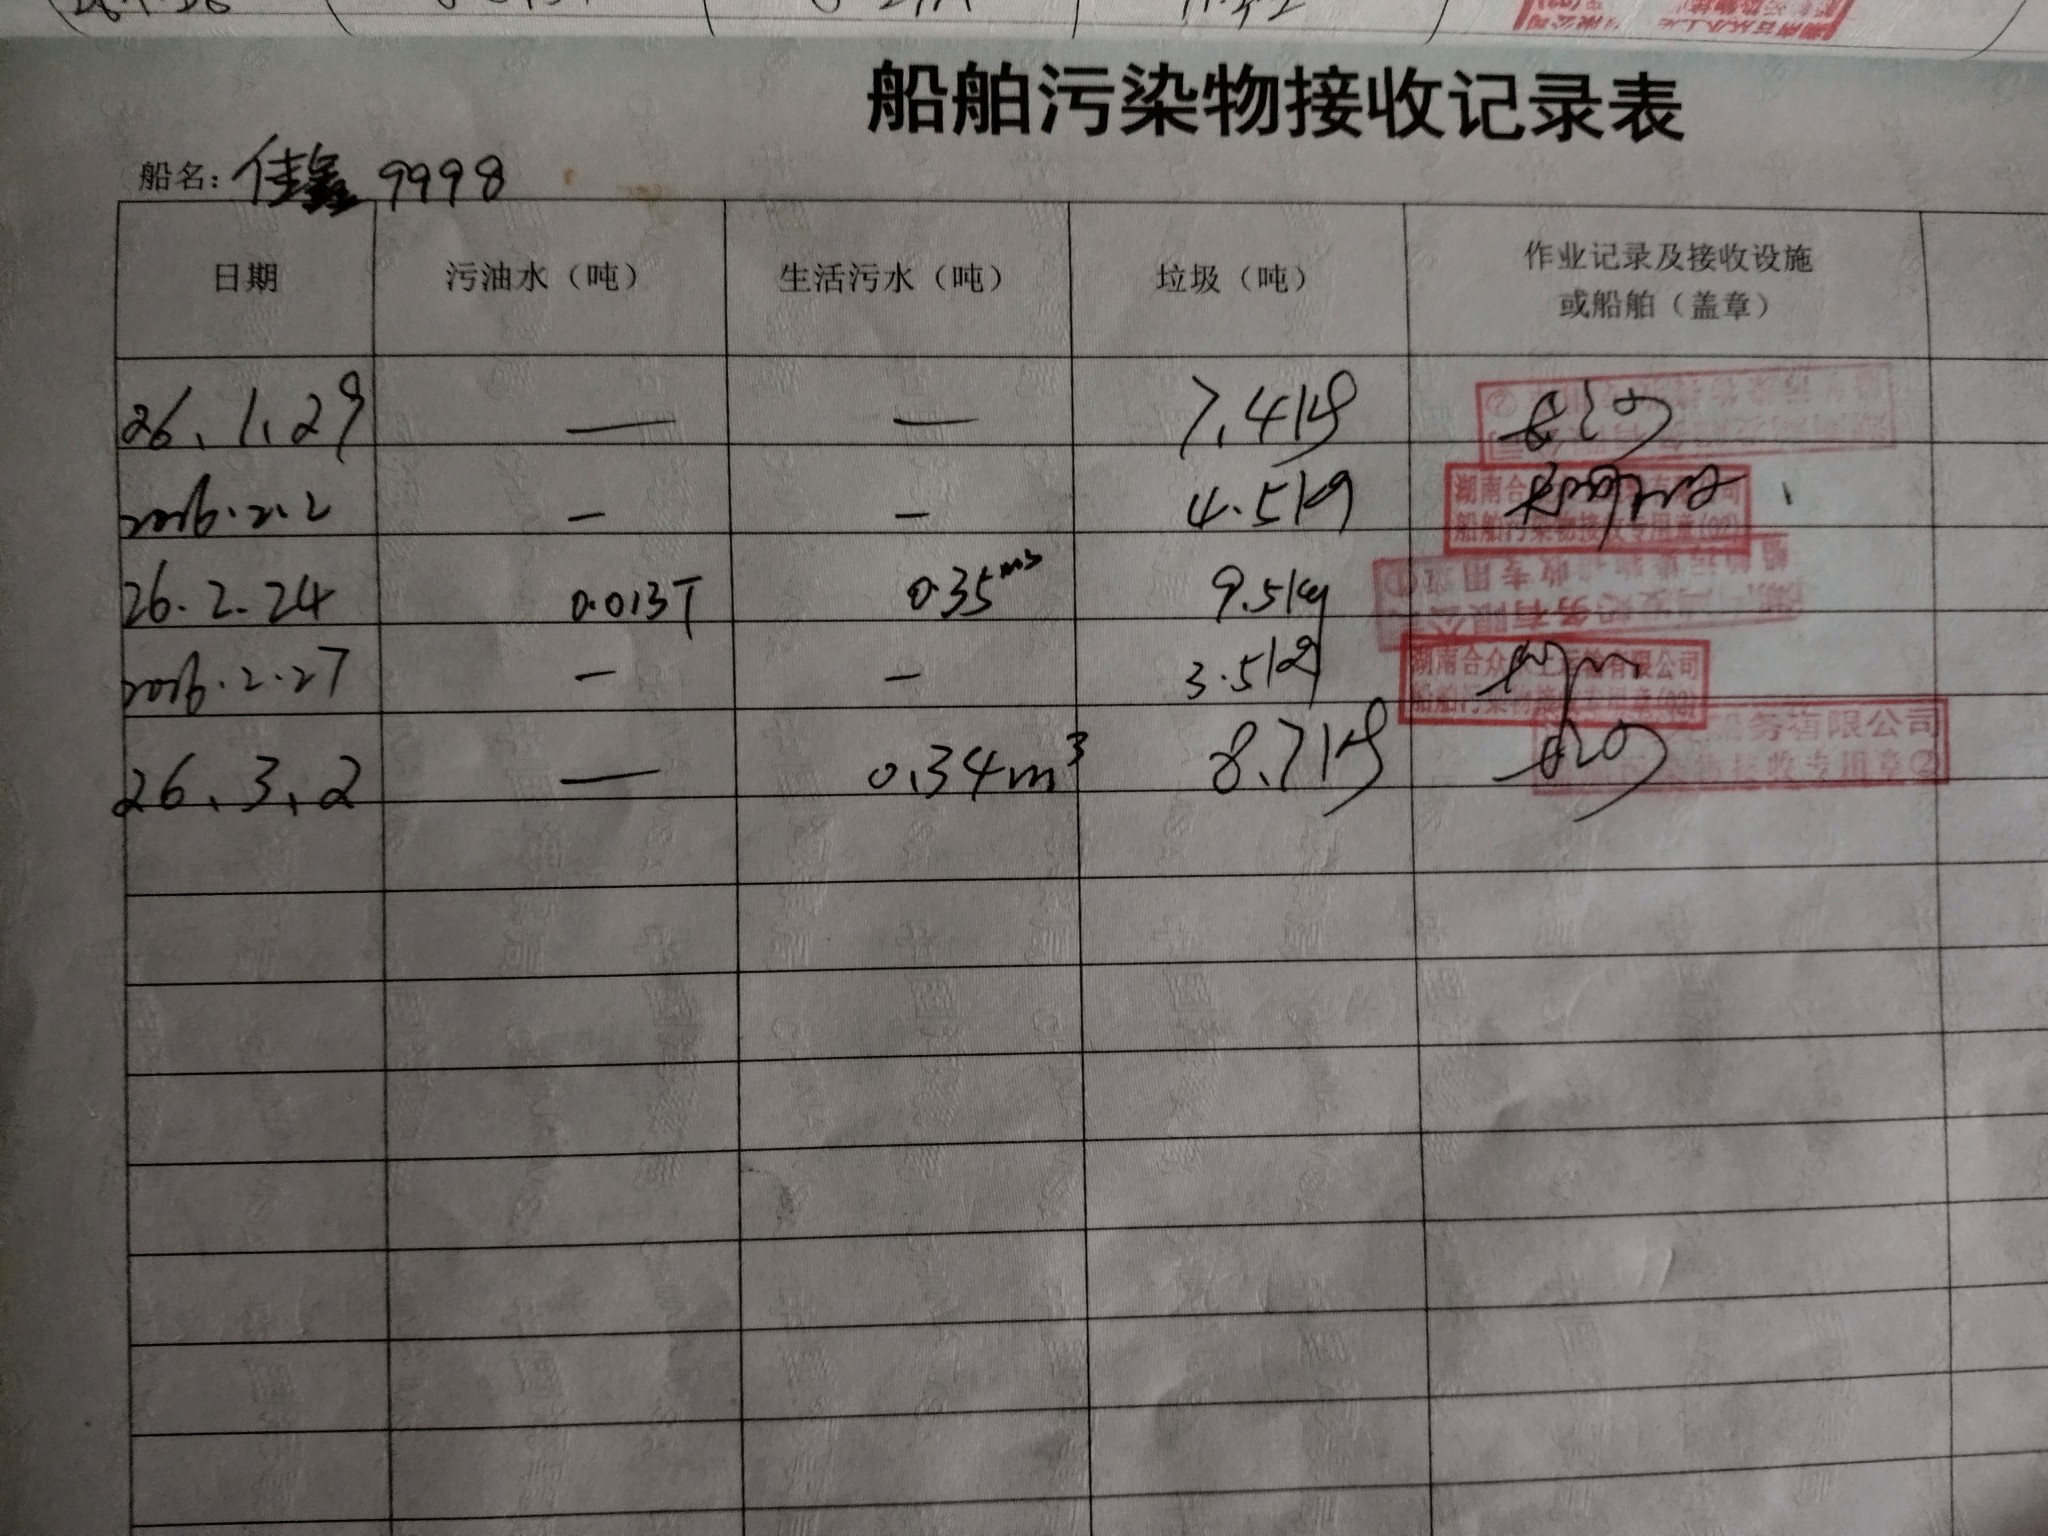 船舶污染物接收记录表
船名：佳鑫 9998
日期 污油水（吨） 生活污水（吨） 垃圾（吨） 作业记录及接收设施
或船舶（盖章）
26.1.29 — — 7.4kg
2026.2.2 — — 4.5kg
湖南合 有限公司
船舶污染物接收专用章(02)
26.2.24 0.013T 0.35m³ 9.5kg
2026.2.27 — — 3.5kg
湖南合众 运输有限公司
船舶污染物接 专用章
26.3.2 — 0.34m³ 8.7kg
船务有限公司
接收专用章②